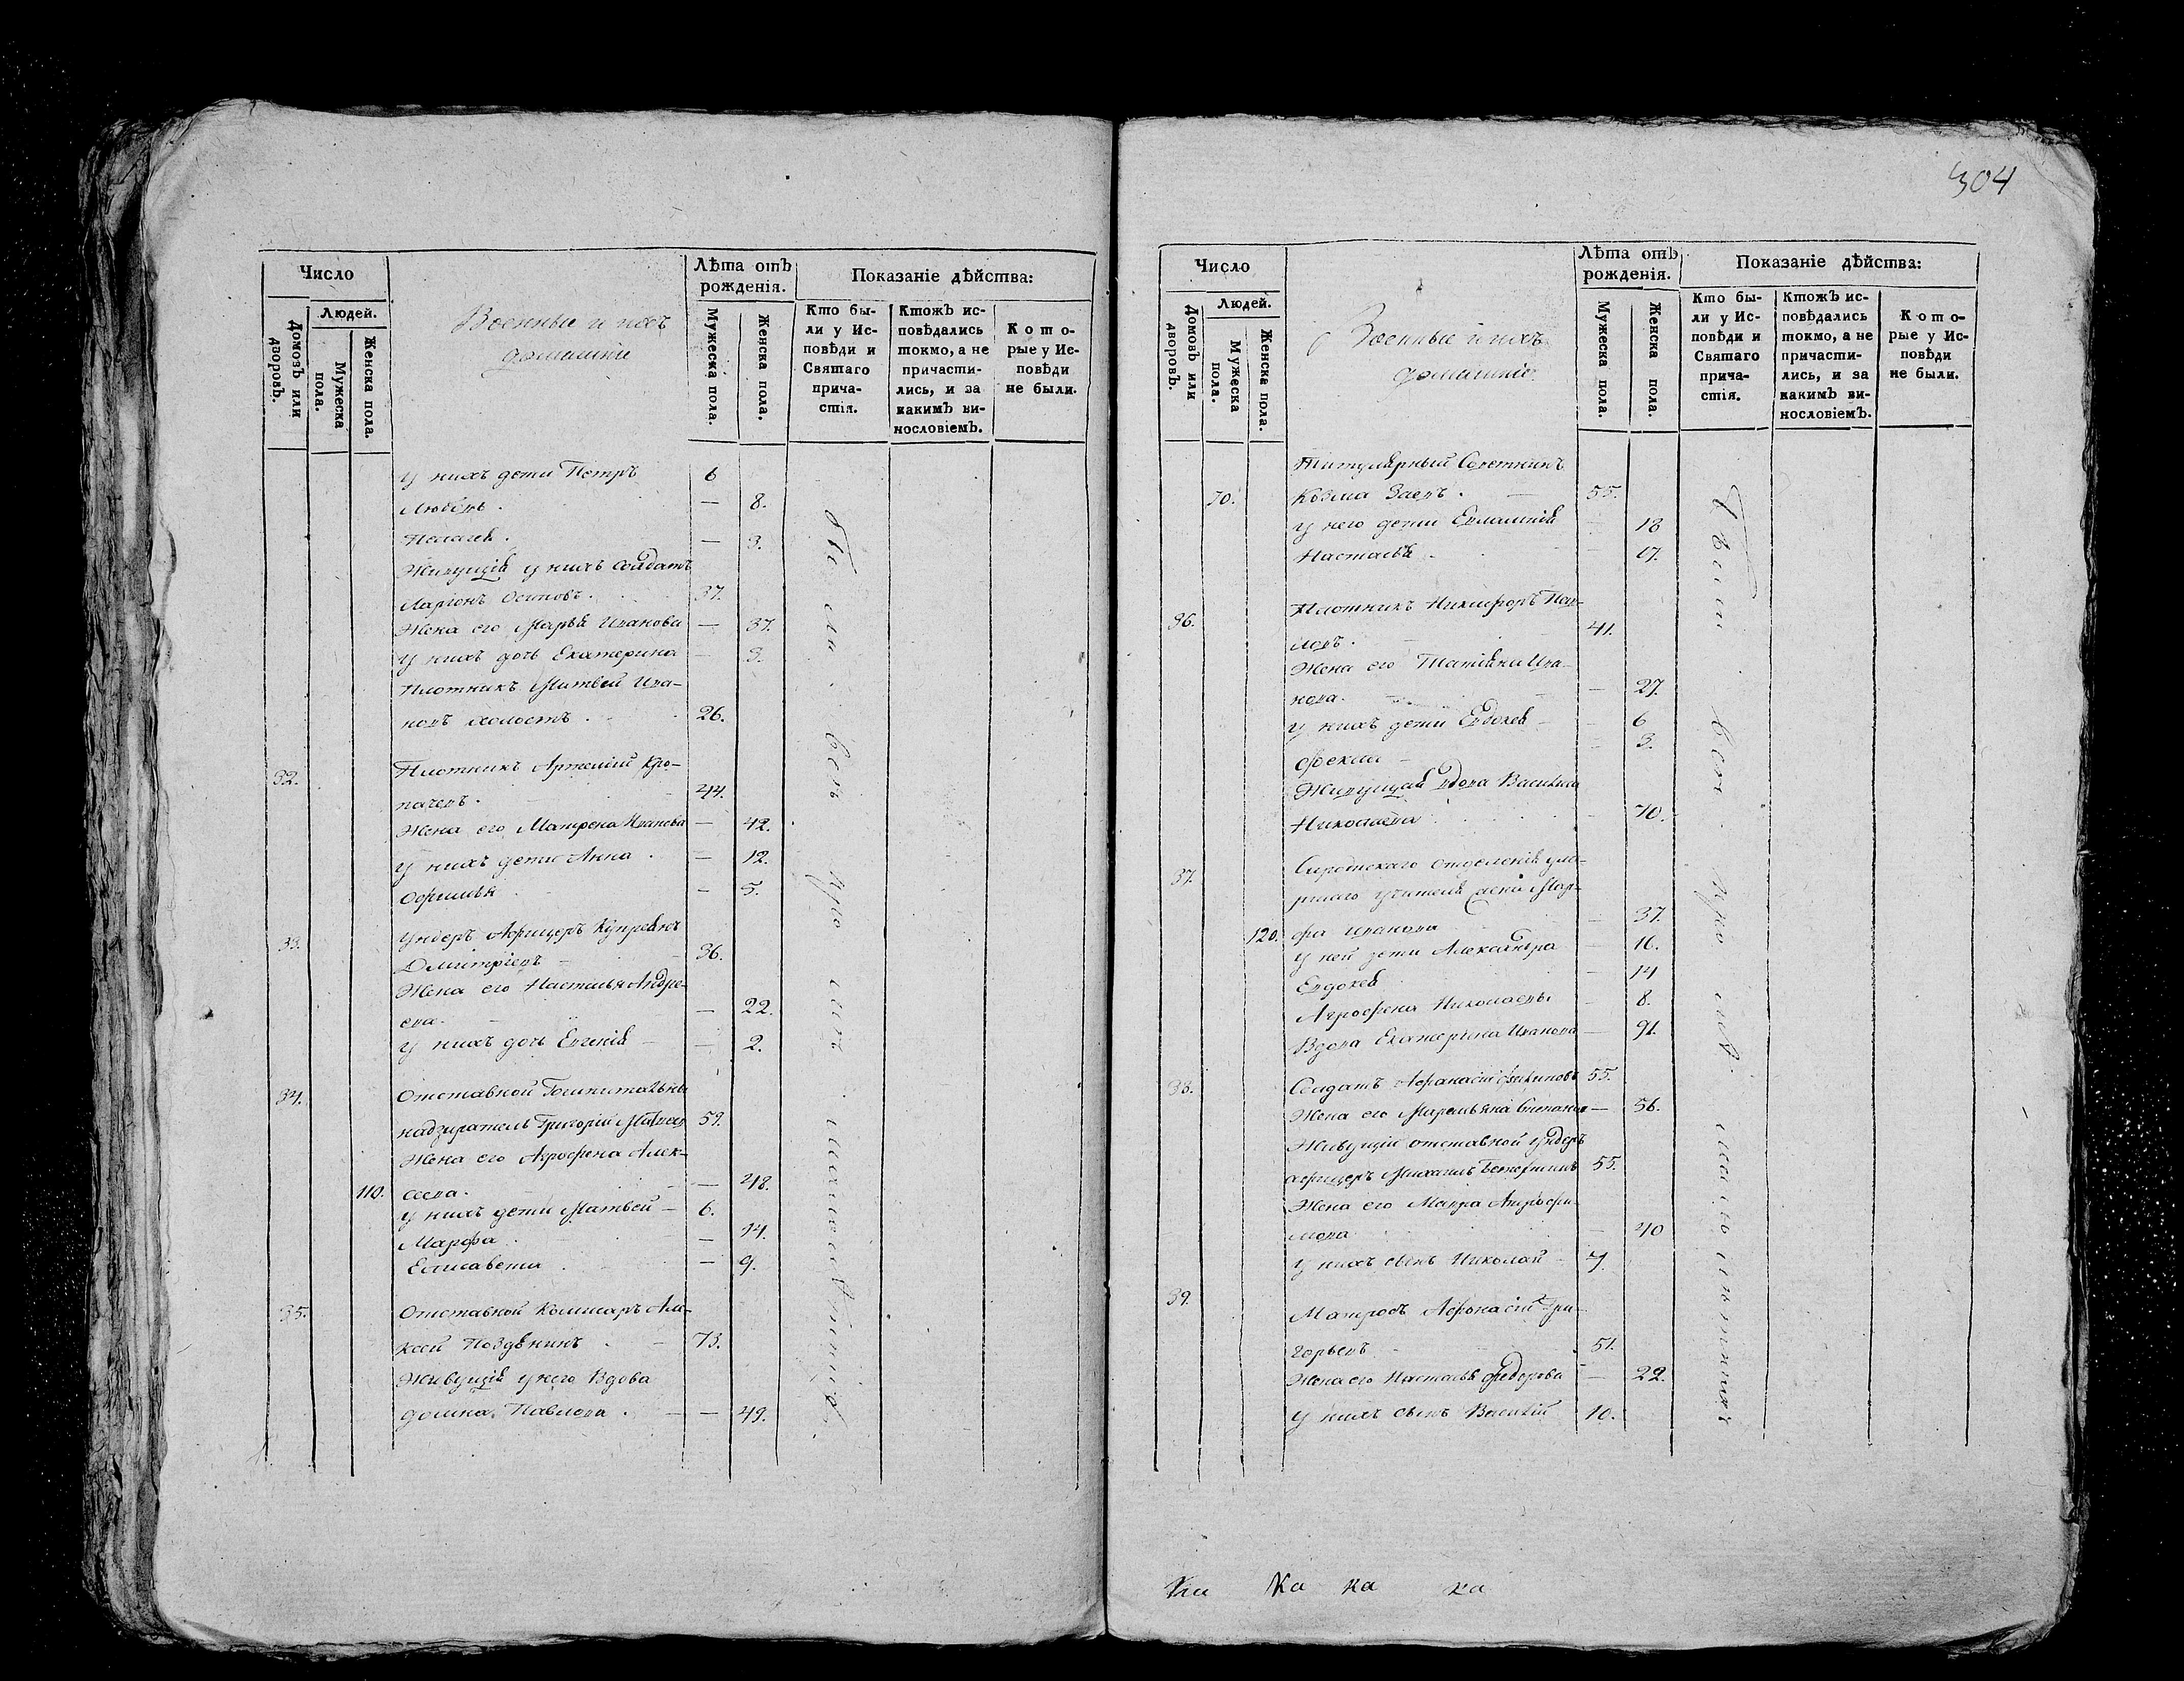 304
Число
Людей.
Домовъ или дворовъ.
Мужеска пола.
Женска пола.
Военные и ихъ
домашніе
Лѣта отъ
рожденія.
Мужеска пола.
Женска пола.
Показаніе дѣйства:
Кто бы-
ли у Ис-
повѣди и
Святаго
прича-
стія.
Ктожъ ис-
повѣдались
токмо, а не
причасти-
лись, и за
какимъ ви-
нословіемъ.
Кото-
рые у Ис-
повѣди
не были.
у нихъ дети Петръ 6
Любовь. — 8.
Пелагея. — 3.
Живущія у нихъ Солдатъ
Ларіонъ Осиповъ. 37.
Жена его Марья Иванова — 37.
у нихъ дочь Екатерина — 3.
Плотникъ Матвей Ива-
новъ холостъ. 26.
32. Плотникъ Артемій Кро-
пачевъ. 44.
Жена его Матрена Иванова — 42.
у нихъ дети Анна. — 12.
Офимья — 5.
33. Ундеръ Афицеръ Купреянъ
Дмитріевъ 36.
Жена его Настасья Андре-
ева. — 22.
у нихъ дочь Евгенія — 2.
34. Отставной Гошпитальны
надзиратель Григорій 59.
Жена его Агрофена Алек-
110. сеева. — 48.
у нихъ дети Матвей — 6.
Марфа. — 14.
Елисавета — 9.
35. Отставной Комисаръ Але-
ксей Поздѣнинъ 73.
Живущія у него Вдова
домна Павлова. — 49.
были вси при
Число
Людей.
Домовъ или дворовъ.
Мужеска пола.
Женска пола.
Военные и ихъ
домашніе
Лѣта отъ
рожденія.
Мужеска пола.
Женска пола.
Показаніе дѣйства:
Кто бы-
ли у Ис-
повѣди и
Святаго
прича-
стія.
Ктожъ ис-
повѣдались
токмо, а не
причасти-
лись, и за
какимъ ви-
нословіемъ.
Кото-
рые у Ис-
повѣди
не были.
Титулярный Советникъ
70. Козма Заевъ. 55.
у него дети Евлампія 18
Настасья — 17.
36. Плотникъ Никифоръ Пав-
ловъ. 41.
Жена его Татіяна Ива-
нова. — 27.
у нихъ дети Евдокея — 6
Фекла — 3.
Живущая вдова Василиса
Николаева — 70.
37. Сиротскаго отделенія уме-
ршаго учителя жена Мар-
120. фа Иванова — 37.
у ней дети Александра — 16.
Евдокея — 14
Агрофена Николаевы — 8.
Вдова Екатерина Иванова — 91.
38. Солдатъ Афанасій Филиповъ 55.
Жена его Маремьяна Степанова — 56.
Живущіе отставной ундеръ
афицеръ Михаилъ 55.
Жена его Мавра Андрофи-
мова — 40
у нихъ сынъ Николай — 7.
39. Матросъ Афонасій Гри-
горьевъ 51.
Жена его Настасья Федорова — 22.
у нихъ сынъ Василій 10.
были вси
Ка Ка ка ка